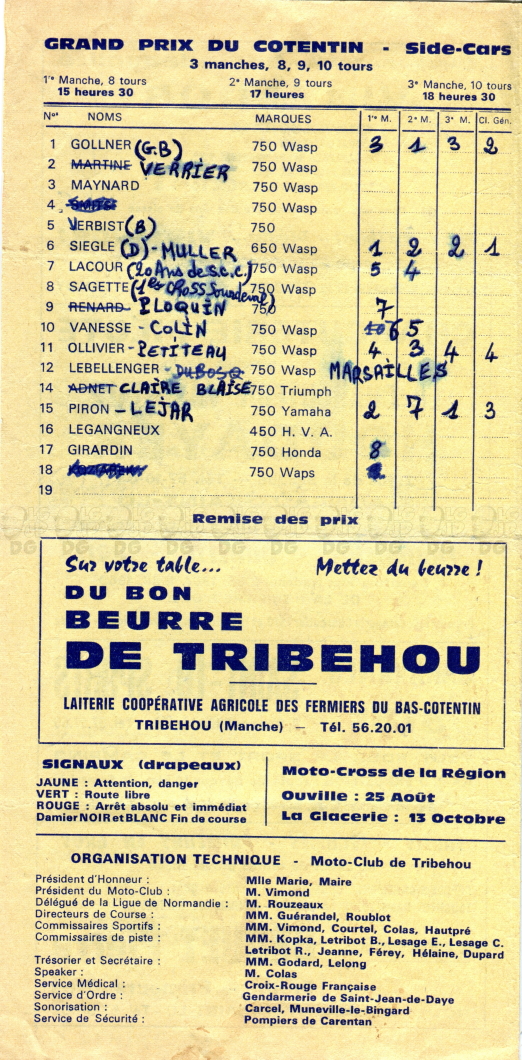 GRAND PRIX DU COTENTIN - Side-Cars
3 manches, 8, 9, 10 tours
1re Manche, 8 tours 2e Manche, 9 tours 3e Manche, 10 tours
15 heures 30 17 heures 18 heures 30
Nos NOMS MARQUES 1re M. 2e M. 3e M. Cl. Gén.
1 GOLLNER (G.B) 750 Wasp 3 1 3 2
2 MARTINE VERRIER 750 Wasp
3 MAYNARD 750 Wasp
4 750 Wasp
5 VERBIST (B) 750
6 SIEGLE (D) - MULLER 650 Wasp 1 2 2 1
7 LACOUR (20 Ans de S.C.C.) 750 Wasp 5 4
8 SAGETTE (1er CROSS Sourdeval) 750 Wasp
9 RENARD PLOQUIN 750 7
10 VANESSE - COLIN 750 Wasp 10 6 5
11 OLLIVIER - PETITEAU 750 Wasp 4 3 4 4
12 LEBELLENGER - DUBOSQ 750 Wasp MARSAILLES
14 ADNET CLAIRE BLAISE 750 Triumph
15 PIRON - LEJAR 750 Yamaha 2 7 1 3
16 LEGANGNEUX 450 H. V. A.
17 GIRARDIN 750 Honda 8
18 750 Waps
19
Remise des prix
Sur votre table... Mettez du beurre !
DU BON
BEURRE
DE TRIBEHOU
LAITERIE COOPÉRATIVE AGRICOLE DES FERMIERS DU BAS-COTENTIN
TRIBEHOU (Manche) — Tél. 56.20.01
SIGNAUX (drapeaux)
JAUNE : Attention, danger
VERT : Route libre
ROUGE : Arrêt absolu et immédiat
Damier NOIR et BLANC Fin de course
Moto-Cross de la Région
Ouville : 25 Août
La Glacerie : 13 Octobre
ORGANISATION TECHNIQUE - Moto-Club de Tribehou
Président d'Honneur : Mlle Marie, Maire
Président du Moto-Club : M. Vimond
Délégué de la Ligue de Normandie : M. Rouzeaux
Directeurs de Course : MM. Guérandel, Roublot
Commissaires Sportifs : MM. Vimond, Courtel, Colas, Hautpré
Commissaires de piste : MM. Kopka, Letribot B., Lesage E., Lesage C.
Letribot R., Jeanne, Férey, Hélaine, Dupard
Trésorier et Secrétaire : MM. Godard, Lelong
Speaker : M. Colas
Service Médical : Croix-Rouge Française
Service d'Ordre : Gendarmerie de Saint-Jean-de-Daye
Sonorisation : Carcel, Muneville-le-Bingard
Service de Sécurité : Pompiers de Carentan